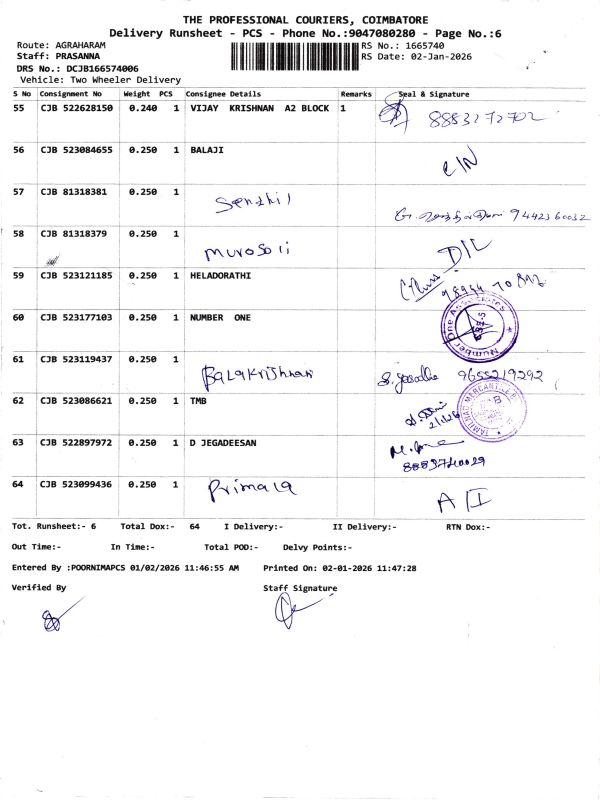 THE PROFESSIONAL COURIERS, COIMBATORE
Delivery Runsheet - PCS - Phone No.:9047080280 - Page No.:6
Route: AGRAHARAM RS No.: 1665740
Staff: PRASANNA RS Date: 02-Jan-2026
DRS No.: DCJB166574006
Vehicle: Two Wheeler Delivery
S No Consignment No Weight PCS Consignee Details Remarks Seal & Signature
55 CJB 522628150 0.240 1 VIJAY KRISHNAN A2 BLOCK 1 8883272702
56 CJB 523084655 0.250 1 BALAJI C/N
57 CJB 81318381 0.250 1 Senthil 9442360032
58 CJB 81318379 0.250 1 Murosoli D/L
59 CJB 523121185 0.250 1 HELADORATHI
60 CJB 523177103 0.250 1 NUMBER ONE Number One
61 CJB 523119437 0.250 1 Balakrishnan 9655219292
62 CJB 523086621 0.250 1 TMB 2/1/26 TAMILNAD MERCANTILE
63 CJB 522897972 0.250 1 D JEGADEESAN
64 CJB 523099436 0.250 1 Primala A/I
Tot. Runsheet:- 6 Total Dox:- 64 I Delivery:- II Delivery:- RTN Dox:-
Out Time:- In Time:- Total POD:- Delvy Points:-
Entered By :POORNIMAPCS 01/02/2026 11:46:55 AM Printed On: 02-01-2026 11:47:28
Verified By Staff Signature